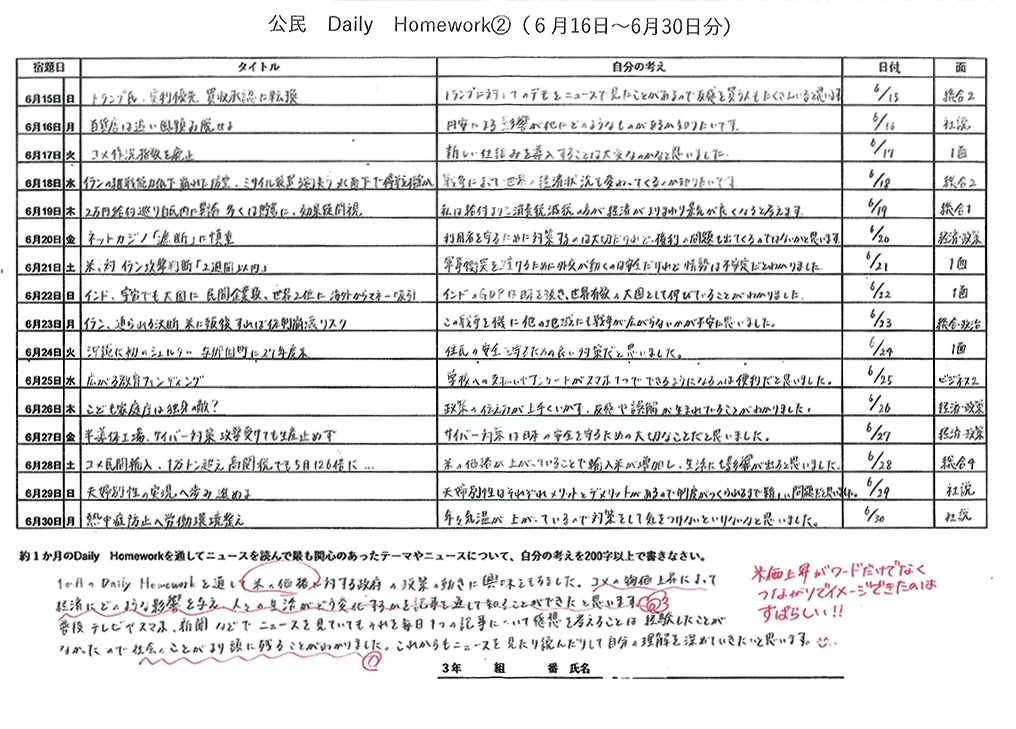 公民　Daily　Homework②（６月16日～6月30日分）
宿題日 タイトル 自分の考え 日付 面
6月15日 日 トランプ氏、実利優先 買収承認に転換 トランプに対してのデモをニュースで見たことがあるので反感を買う人もたくさんいると思います 6/15 総合2
6月16日 月 百貨店は追い風頼み脱せよ 円安による影響が他にどのようなものがあるか知りたいです。 6/16 社説
6月17日 火 コメ作況指数を廃止 新しい仕組みを導入することは大変なのかなと思いました。 6/17 1面
6月18日 水 イランの継戦能力低下 崩れた防空、ミサイル装置3割失う 水面下で停戦模索か 戦争によって世界の経済状況も変わってくるのか知りたいです。 6/18 総合2
6月19日 木 2万円給付巡り自民内に異論 多くは貯蓄に、効果疑問視 私は給付より消費税減税の方が経済がよりまわり景気が良くなると考えます。 6/19 総合1
6月20日 金 ネットカジノ「遮断」に慎重 利用者を守るために対策するのは大切だけれど、権利の問題も出てくるのではないかと思います 6/20 経済・政策
6月21日 土 米、対イラン攻撃判断「2週間以内」 軍事衝突を避けるために外交が動くのは安全だけれど情勢は不安定だとわかりました。 6/21 1面
6月22日 日 インド、宇宙でも大国に 民間企業数、世界2位に 海外からマネー吸引 インドのGDPは日本を抜き、世界有数の大国として伸びていることがわかりました。 6/22 1面
6月23日 月 イラン、迫られる決断 米に報復すれば体制崩壊リスク この戦争を機に他の地域にも戦争が広がらないかが不安に思いました。 6/23 総合・政治
6月24日 火 沖縄に初のシェルター 与那国町に27年度末 住民の安全を守るための良い対策だと思いました。 6/24 1面
6月25日 水 広がる教育ファンディング 学校への支払いやアンケートがスマホ1つでできるようになるのは便利だと思いました。 6/25 ビジネス2
6月26日 木 こども家庭庁は独身の敵？ 政策の伝え方が上手くいかず、反感や誤解が生まれていることがわかりました。 6/26 経済・政策
6月27日 金 半導体工場、サイバー対策 攻撃受けても生産止めず サイバー対策は日本の安全を守るための大切なことだと思いました。 6/27 経済・政策
6月28日 土 コメ民間輸入、1万トン超え 高関税でも5月126倍に… 米の価格が上がっていることで輸入米が増加し、生活にも影響が出ると思いました。 6/28 総合4
6月29日 日 夫婦別姓の実現へ歩み進めよ 夫婦別姓はそれぞれメリットとデメリットがあるので制度がつくられるまで難しい問題だと思いました。 6/29 社説
6月30日 月 熱中症防止へ労働環境整え 年々気温が上がっているので対策をして気をつけないといけないなと思いました。 6/30 社説
約１か月のDaily　Homeworkを通してニュースを読んで最も関心のあったテーマやニュースについて、自分の考えを200字以上で書きなさい。
1か月のDaily Homeworkを通して米の価格に対する政府の政策の動きに興味をもちました。コメの物価上昇によって
経済にどのような影響を与え、人々の生活がどう変化するかを記事を通して知ることができたと思います。
普段テレビやスマホ、新聞などでニュースを見ていてもそれを毎日1つの記事について感想を考えることは経験したことが
なかったので社会のことがより頭に残ることがわかりました。これからもニュースを見たり読んだりして自分の理解を深めていきたいと思います。
米価上昇がワードだけでなく
つながりでイメージできたのは
すばらしい!!
３年　　組　　　番　氏名